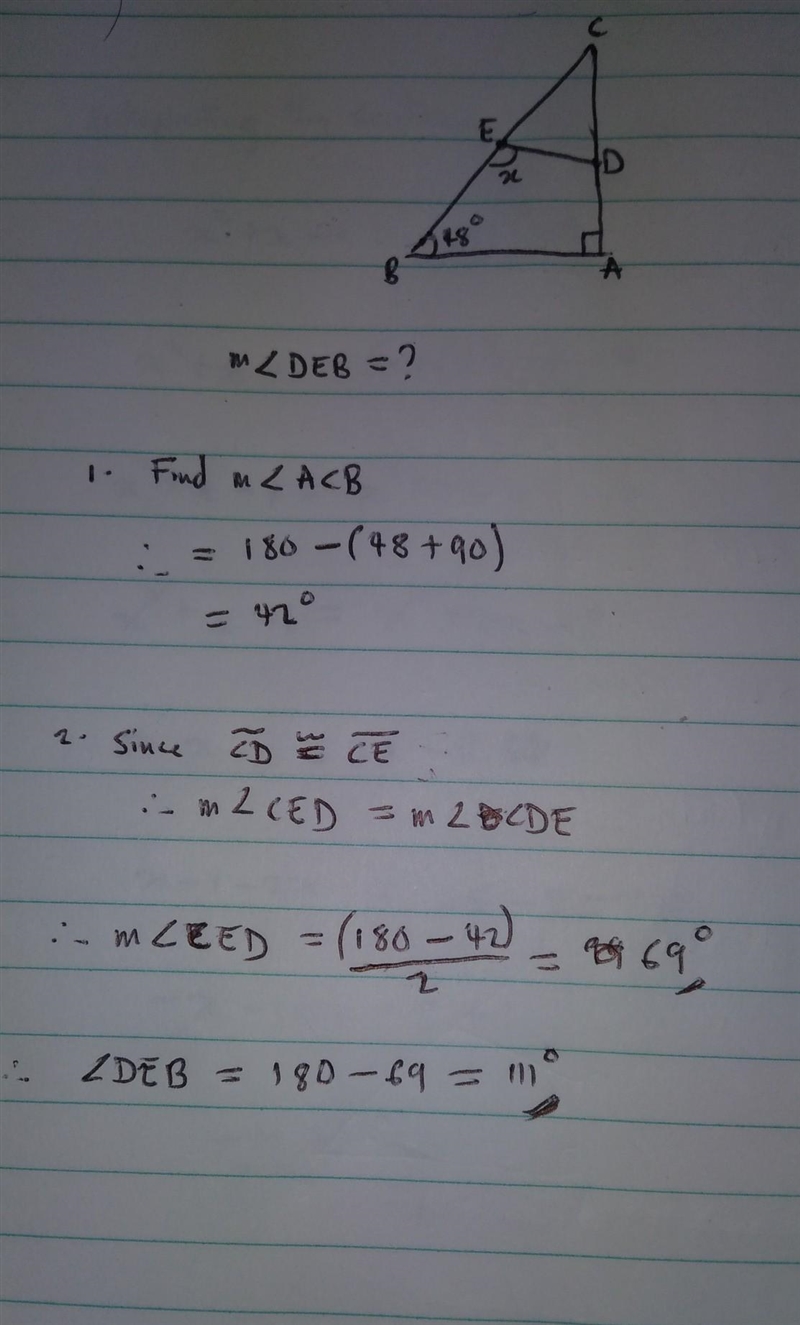 C
E
x
D
48°
B
A
m∠DEB = ?
1. Find m∠ACB
∴ = 180 - (48 + 90)
= 42°
2. Since C̅D̅ ≅ C̅E̅
∴ m∠CED = m∠CDE
∴ m∠CED = (180 - 42)/2 = 69°
∴ ∠DEB = 180 - 69 = 111°